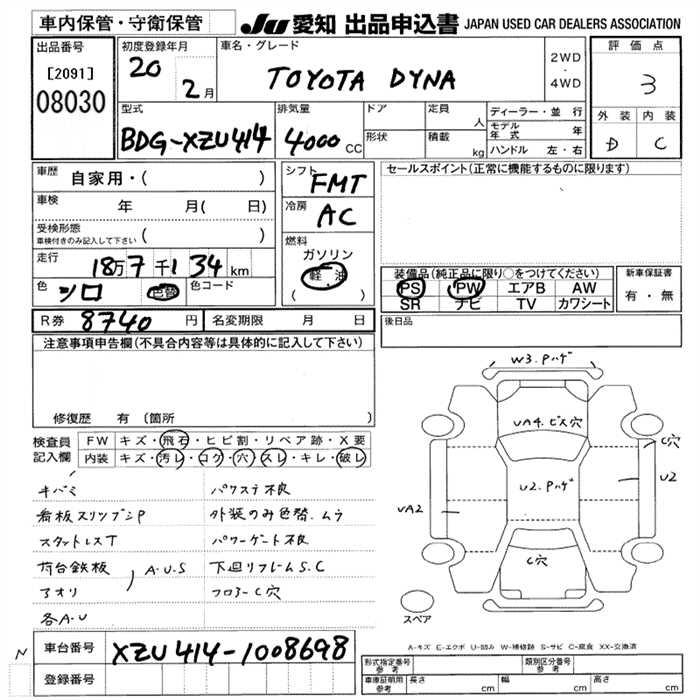 車内保管・守衛保管
JU 愛知 出品申込書 JAPAN USED CAR DEALERS ASSOCIATION
出品番号
[2091]
08030
初度登録年月
20 2月
車名・グレード
TOYOTA DYNA
2WD
・
4WD
評価点
3
外装 内装
D C
型式
BDG-XZU414
排気量
4000 CC
ドア
形状
定員 人
積載 kg
ディーラー・並行
モデル年式 年
ハンドル 左・右
車歴
自家用・( )
車検
年 月( 日)
受検形態
車検付きのみ記入して下さい ( )
走行
18万7千134 km
色
シロ 色替 色コード
シフト
FMT
冷房
AC
燃料
ガソリン
軽油
( )
セールスポイント(正常に機能するものに限ります)
装備品(純正品に限り○をつけてください)
PS PW エアB AW
SR ナビ TV カワシート
新車保証書
有・無
R券 8740 円 名変期限 月 日
後日品
注意事項申告欄(不具合内容等は具体的に記入して下さい)
修復歴 有 (箇所 )
検査員記入欄
FW キズ・飛石・ヒビ割・リペア跡・X要
内装 キズ・汚レ・コゲ・穴・スレ・キレ・破レ
キバミ
看板スリンブンP
スタットレスT
荷台鉄板
アオリ
A・U・S
各A・U
パワステ不良
外装のみ色替.ムラ
パワーゲート不良
下廻リフレームS.C
フロアーC穴
W3.Pハゲ
UA4.ビス穴
C穴
U2
U2.Pハゲ
UA2
C穴
スペア
A-キズ E-エクボ U-凹み W-補修跡 S-サビ C-腐食 XX-交換済
N
車台番号 XZU414-1008698
登録番号
形式指定番号 参考
類別区分番号 参考
車庫証明用 参考
長さ cm 幅 cm 高さ cm